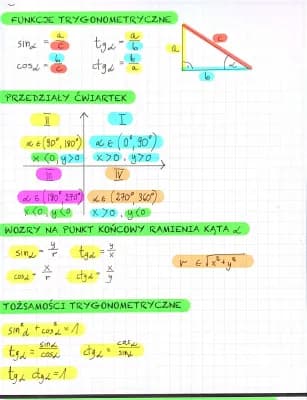 FUNKCJE TRYGONOMETRYCZNE
sin α = a/c   tg α = a/b
cos α = b/c   ctg α = b/a
a c α b
PRZEDZIAŁY ĆWIARTEK
II I
α ∈ (90°, 180°) α ∈ (0°, 90°)
x<0, y>0 x>0, y>0
III IV
α ∈ (180°, 270°) α ∈ (270°, 360°)
x<0, y<0 x>0, y<0
WZORY NA PUNKT KOŃCOWY RAMIENIA KĄTA α
sin α = y/r   tg α = y/x
cos α = x/r   ctg α = x/y
r ∈ √x²+y²
TOŻSAMOŚCI TRYGONOMETRYCZNE
sin²α + cos²α = 1
tg α = sin α/cos α   ctg α = cos α/sin α
tg α · ctg α = 1